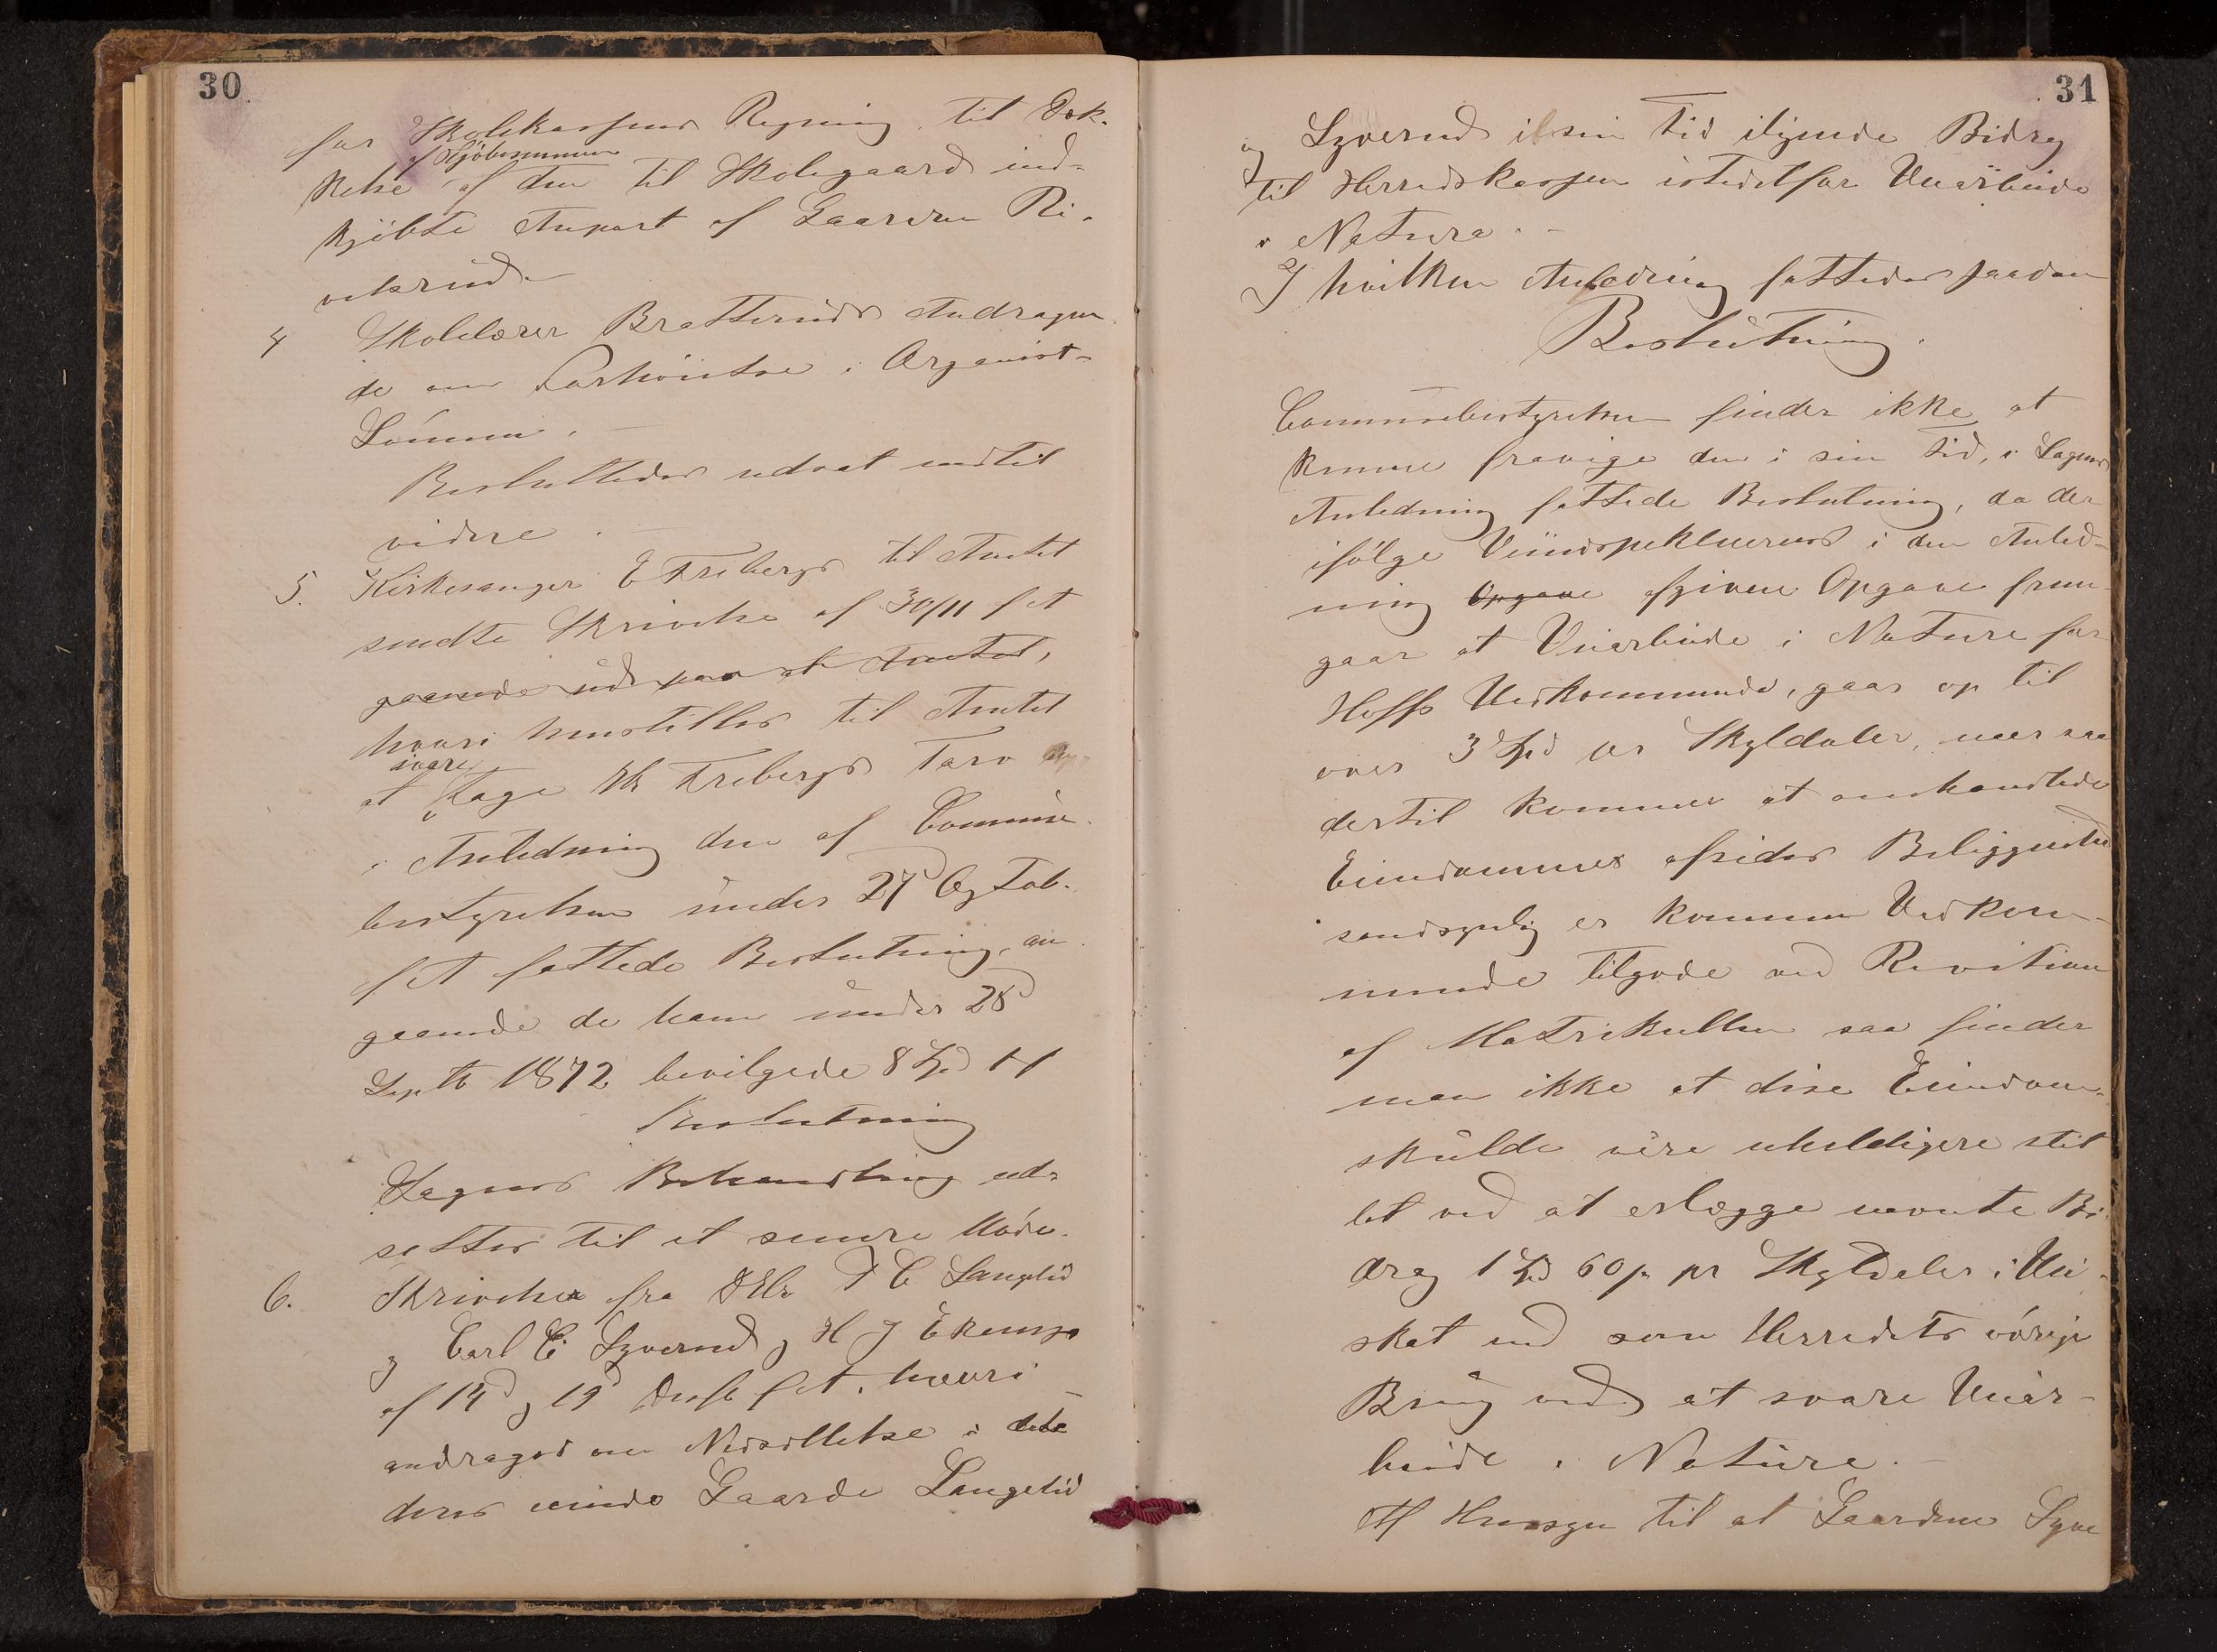 30
for Skolekassens Regning til Dæk-
af Kjøbesummen
kelse af den til Skolegaard ind-
kjøbte Anpart af Gaarden Ri-
velsrud.
4 Skolelærer Bratteruds Andragen
de om Forhöielse i Organist-
Lönnen.
Besluttedes udsat indtil
videre.
5. Kirkesanger E Fribergs til Amtet
sendte Skrivelse af 30/11 f A
gaaende ud paa at Amtet,
hvori henstilles til Amtet
svare
at tage Hr Fribergs Tarv
i Anledning den af Commune-
bestyrelsen under 27d Og Tob.
f A fattede Beslutning, an
gaaende de ham under 28d
Septb 1872 bevilgede 8 Spd
Beslutning
Sagens Behandling ud-
sættes til et senere Möde.
6. Skrivelse fra DHr P C Langelid
og Carl C. Lyverud og H J
af 14d og 19d Desb f A. hvori
andrages om Nedsættelse i dette
deres eiende Gaarde Langelid
31
og Lyverud i sin Tid ilignede Bidrag
til Herredskassen istedetfor Veiarbeide
i Natura.
I hvilken Anledning fattedes saadan
Beslutning.
Communebestyrelsen finder ikke at
kunne fravige den i sin Tid, i Sagens
Anledning fattede Beslutning, da der
ifølge Veiinspekteurens i den Anled-
ning Opgave afgivne Opgave frem-
gaar at Veiarbeide i Nature for
Hoffs Vedkommende, gaar op til
over 3 Spd pr Skylddaler, naar saa
dertil kommer at omhandlede
Eiendommes afsides Beliggenhed
sandsynlig er kommen Vedkom-
mende tilgode ved Revitionen
af Matrikullen saa finder
man ikke at disse Eiendom.
skulde være uheldigere stil
let ved at erlægge nævnte Bi
drag 1 Spd 60 s pr Skylddaler i Vei-
skat end som Herredets övrige
Brug ved at svare Veiar-
beide i Nature.
Af Hensyn til at Gaardene Lyve